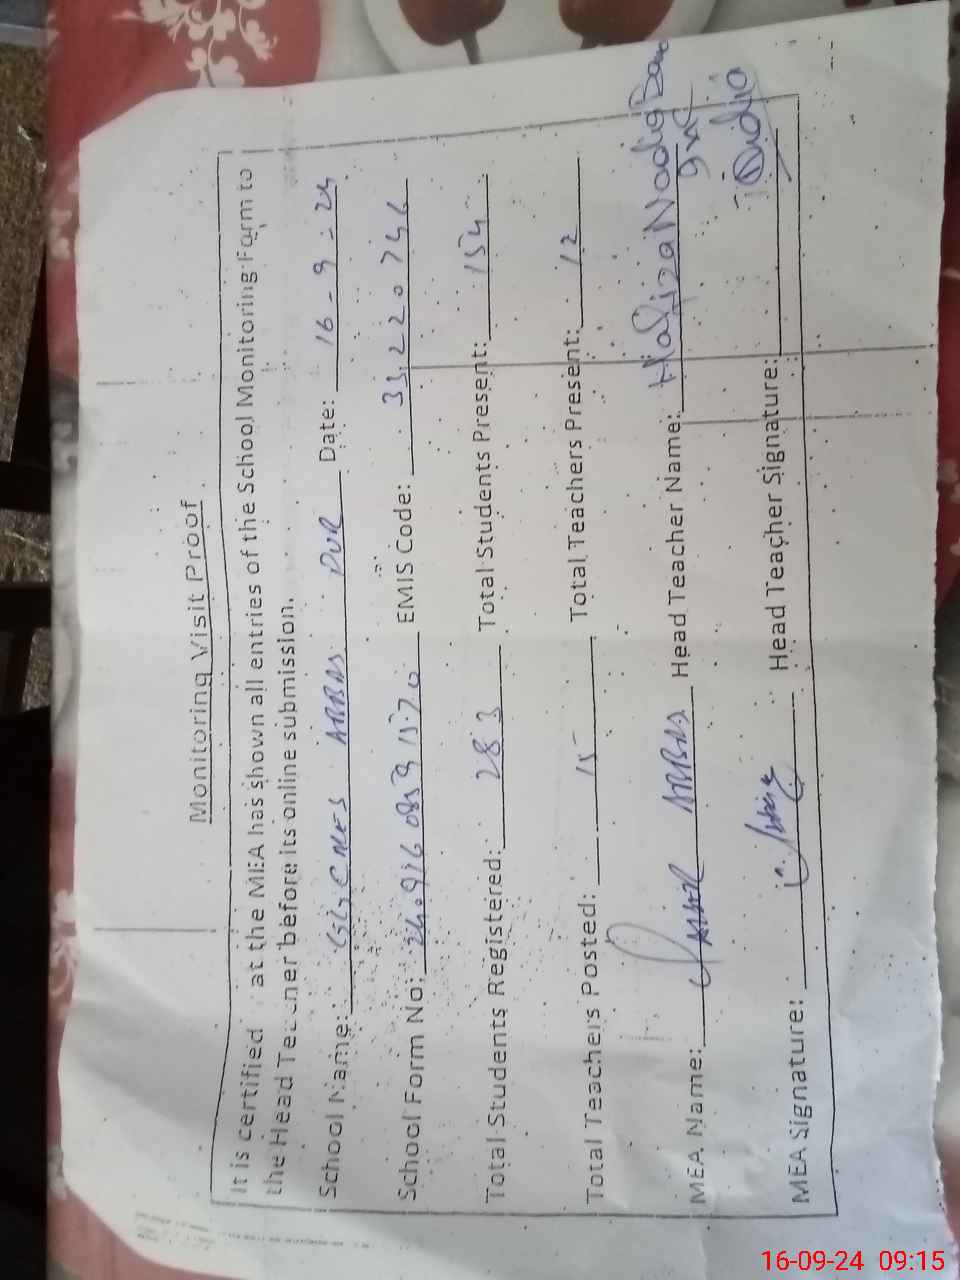 Monitoring Visit Proof
It is certified at the MEA has shown all entries of the School Monitoring Form to
the Head Teacher before its online submission.
School Name: ABBAS PUR Date: 16-9-24
School Form No: EMIS Code: 33220746
Total Students Registered: 283 Total Students Present: 154
Total Teachers Posted: 15 Total Teachers Present: 12
MEA Name: ABBAS Head Teacher Name: Hafiza Nadia
MEA Signature: Head Teacher Signature: Nadia
16-09-24 09:15